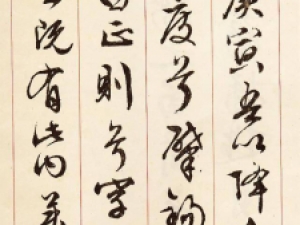 庚寅吾以降
度兮肇錫
曰正則兮字
既有此內美